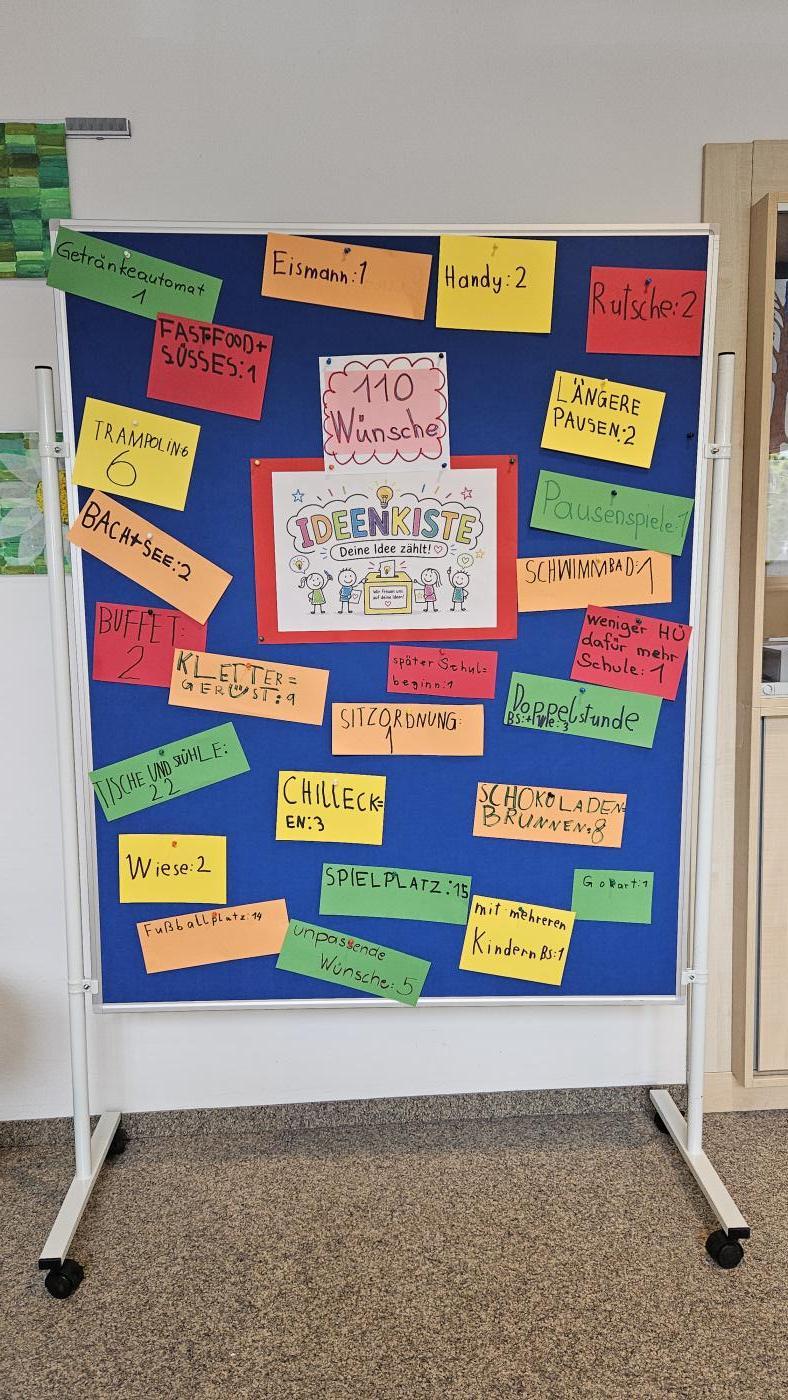 Getränkeautomat
1
Eismann:1
Handy:2
Rutsche:2
FASTFOOD+
SÜSSES:1
110
Wünsche
LÄNGERE
PAUSEN:2
TRAMPOLIN:
6
IDEENKISTE
Deine Idee zählt!
Wir freuen uns
auf deine Ideen!
Pausenspiele:1
BACH+SEE:2
SCHWIMMBAD:1
BUFFET:
2
weniger HÜ
dafür mehr
Schule:1
KLETTER=
GERÜST:9
später Schul=
beginn:1
SITZORDNUNG:
1
Doppelstunde
BS:+We:3
TISCHE UND STÜHLE:
22
CHILLECK=
EN:3
SCHOKOLADEN=
BRUNNEN:8
Wiese:2
SPIELPLATZ:15
Gokart:1
Fußballplatz:14
unpassende
Wünsche:5
mit mehreren
Kindern BS:1